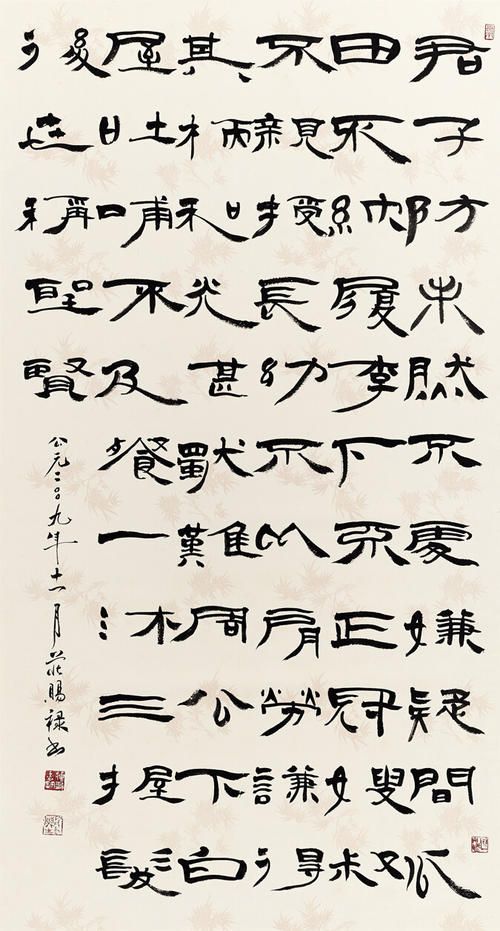 君子防未然不處嫌疑間瓜
田不納履李下不正冠嫂叔
不親授長幼不比肩勞謙得
其柄和光甚獨難周公下白
屋吐哺不及餐一沐三握髮
後世稱聖賢
公元二〇〇九年十一月莊賜祿書